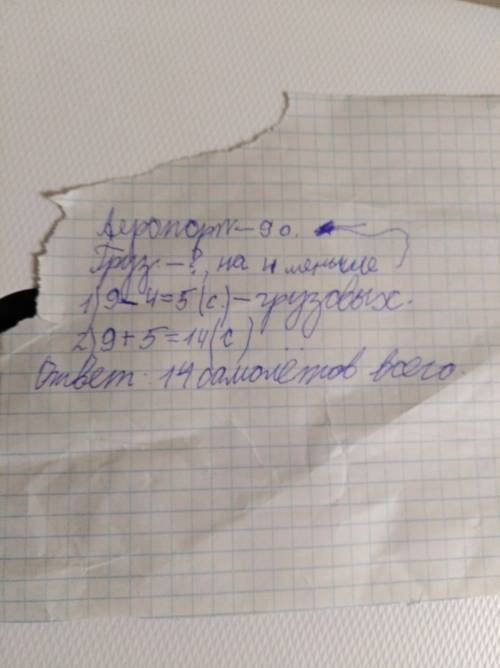 Аеропорт – 9 с.
Груз. – ?, на 4 меньше
1) 9 – 4 = 5 (с.) – грузовых.
2) 9 + 5 = 14 (с)
Ответ: 14 самолётов всего.